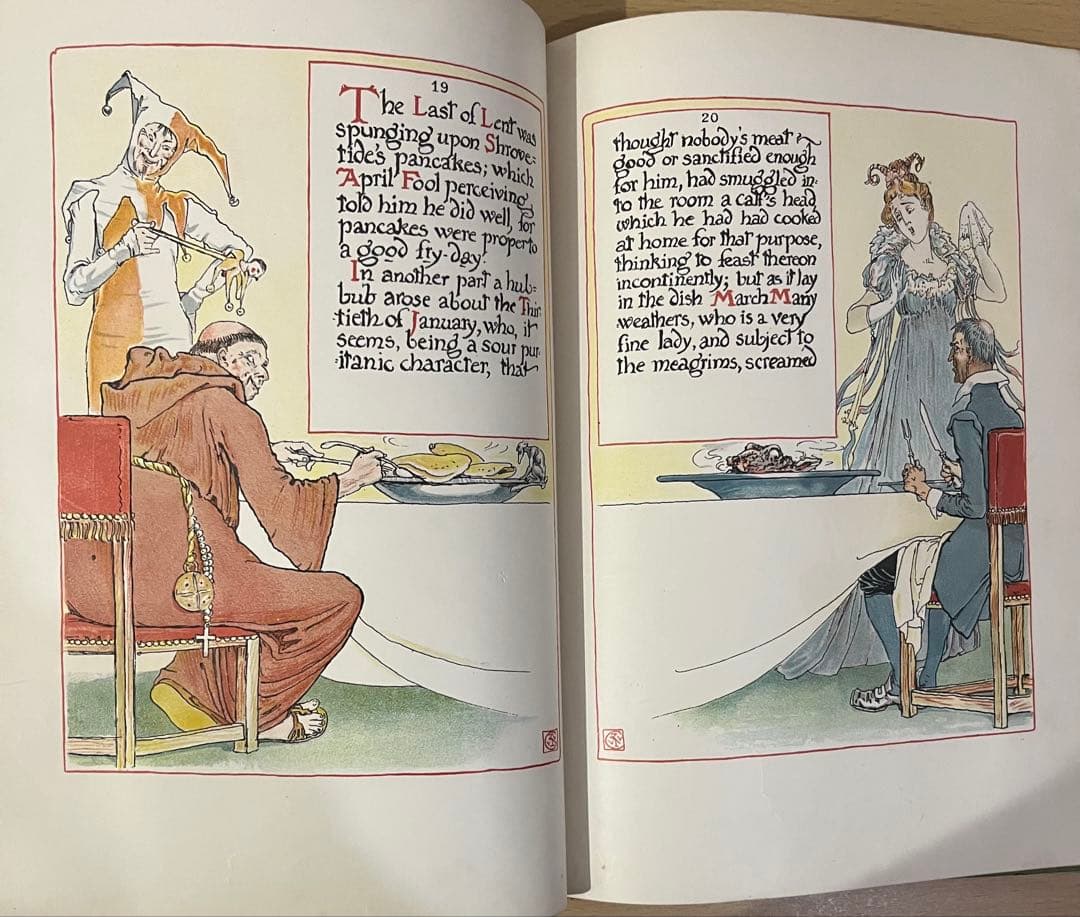 19
The Last of Lent was
spunging upon Shrove=
tide's pancakes; which
April Fool perceiving,
told him he did well, for
pancakes were proper to
a good fry-day.
In another part a hub=
bub arose about the Thir
tieth of January, who, it
seems, being a sour pur
itanic character, that
20
thought nobody's meat
good or sanctified enough
for him, had smuggled in
to the room a calf's head,
which he had had cooked
at home for that purpose,
thinking to feast thereon
incontinently; but as it lay
in the dish March Many
weathers, who is a very
fine lady, and subject to
the meagrims, screamed